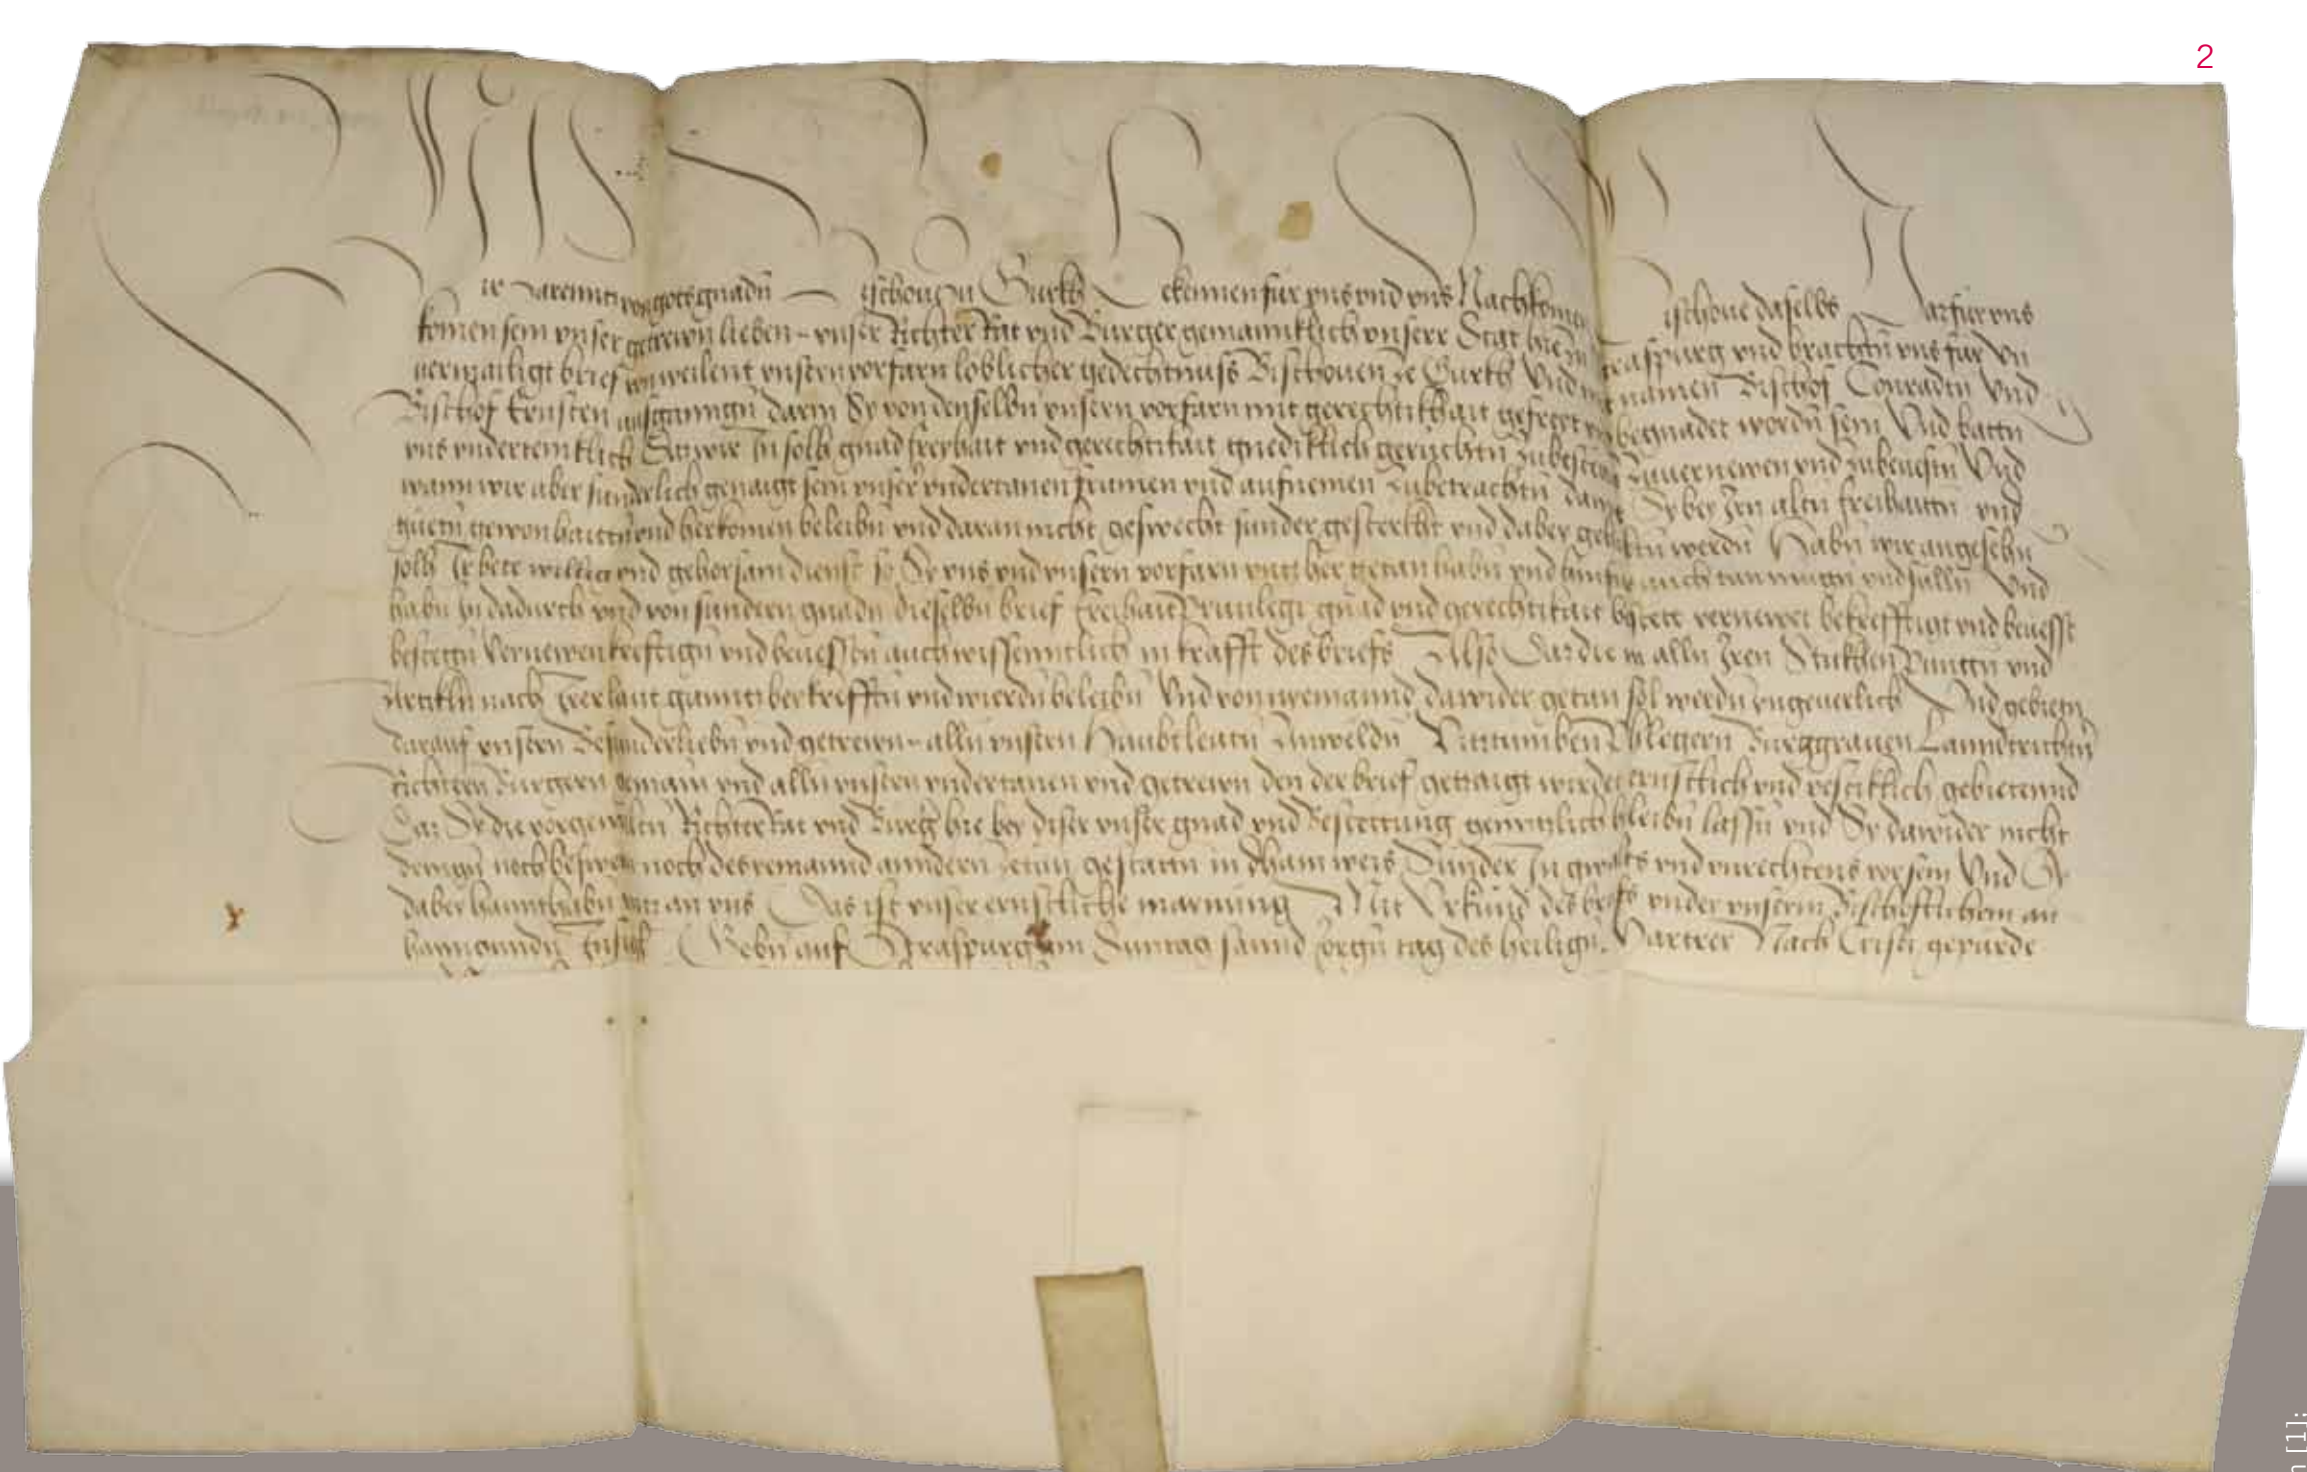 2
Wir von gots gnadn Bischoue zu Gurkh Bekennen fur vns vnd vns Nachkomen Bischoue daselbs Das fur vns
komen sein vnser getrewn lieben vnser Richter Rat vnd Burger gemainklich vnserr Stat hie zu Straspurg vnd brachtn vns fur vn
vermailigt brief von weilent vnsern vorfarn loblicher gedechtnuss Bischouen ze Gurkh Vnd mit namen Bischof Conradin Vnd
Bischof Ernsten ausgangn darin Sy von denselbn vnsern vorfarn mit gerechtikhait gefreyet vnd begnadet wordn sein Vnd batn
vns vnderteniklich Daz wir In solh gnad freyhait vnd gerechtikait gnediklich geruchtn zubesteten zuuernewen vnd zubeuestn Vnd
wann wir aber sunderlich genaigt sein vnser vndertanen frumen vnd aufnemen zubetrachtn damit Sy bey Irn altn freihaittn vnd
guetn gewonhaittn vnd herkomen beleibn vnd daran nicht geswecht sunder gesterkht vnd dabey gehalten werdn Habn wir angesehn
solh Ir bete willig vnd gehorsam dienst so Sy vns vnd vnsern vorfarn vntzher getan habn vnd hinfur auch tun mugn vnd sulln Vnd
habn In dadurch vnd von sundern gnadn dieselbn brief freihait Priuilegi gnad vnd gerechtikait bestett vernewet bekrefftigt vnd beuesst
bestettn vernewen kreftign vnd beuesstn auch wissenntlich in krafft des briefs Also Daz die in alln Iren Stukhen Punttn vnd
Artikln nach Irer laut ganntz bey krefftn vnd wierdn beleibn Vnd von nyemannd dawider getan sol werdn vngeuerlich Vnd gebietn
darauf vnsern Besunderliebn vnd getrewn alln vnsern Haubtleutn Anweldn Vitztumben Phlegern Burggrauen Lanndrichtern
Richtern Burgern gmain vnd alln vnsern vndertanen vnd getrewn den der brief getzaigt wirdet ernstlich vnd vestiklich gebietennd
Daz Sy die vorgemeltn Richter Rat vnd Burger hie bey diser vnser gnad vnd Bestettung genntzlich bleibn lassn vnd Sy dawider nicht
dringn noch besweren noch des yemannd anndern zetun gestattn in dhain weis Sunder In gwalts vnd vnrechtens vor sein Vnd Sy
dabey hannthabn von an vns Das ist vnser ernstliche maynung Mit Vrkund des briefs vnder vnserm Bischoflichem an
hanngundn Insigl Gebn auf Straspurg am Suntag sannd Jorgn tag des heilign Martrer Nach Cristi gepurde